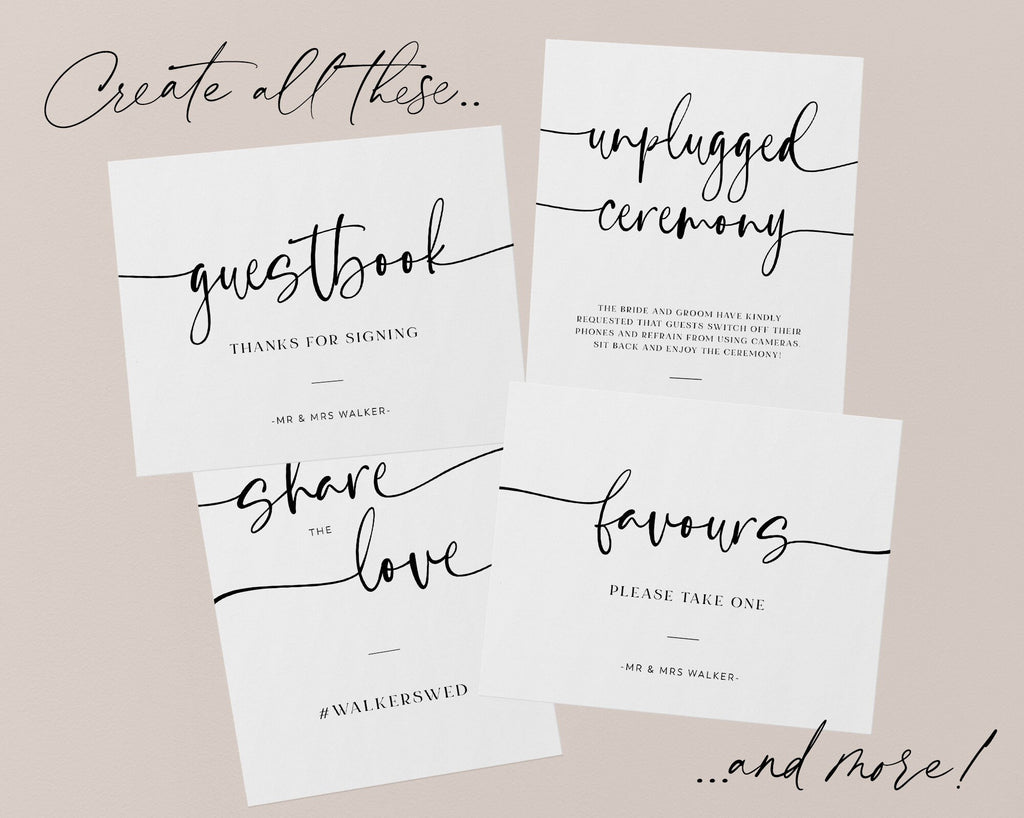 Create all these..
guestbook
THANKS FOR SIGNING
-MR & MRS WALKER-
unplugged
ceremony
THE BRIDE AND GROOM HAVE KINDLY
REQUESTED THAT GUESTS SWITCH OFF THEIR
PHONES AND REFRAIN FROM USING CAMERAS.
SIT BACK AND ENJOY THE CEREMONY!
share
THE
love
#WALKERSWED
favours
PLEASE TAKE ONE
-MR & MRS WALKER-
...and more!